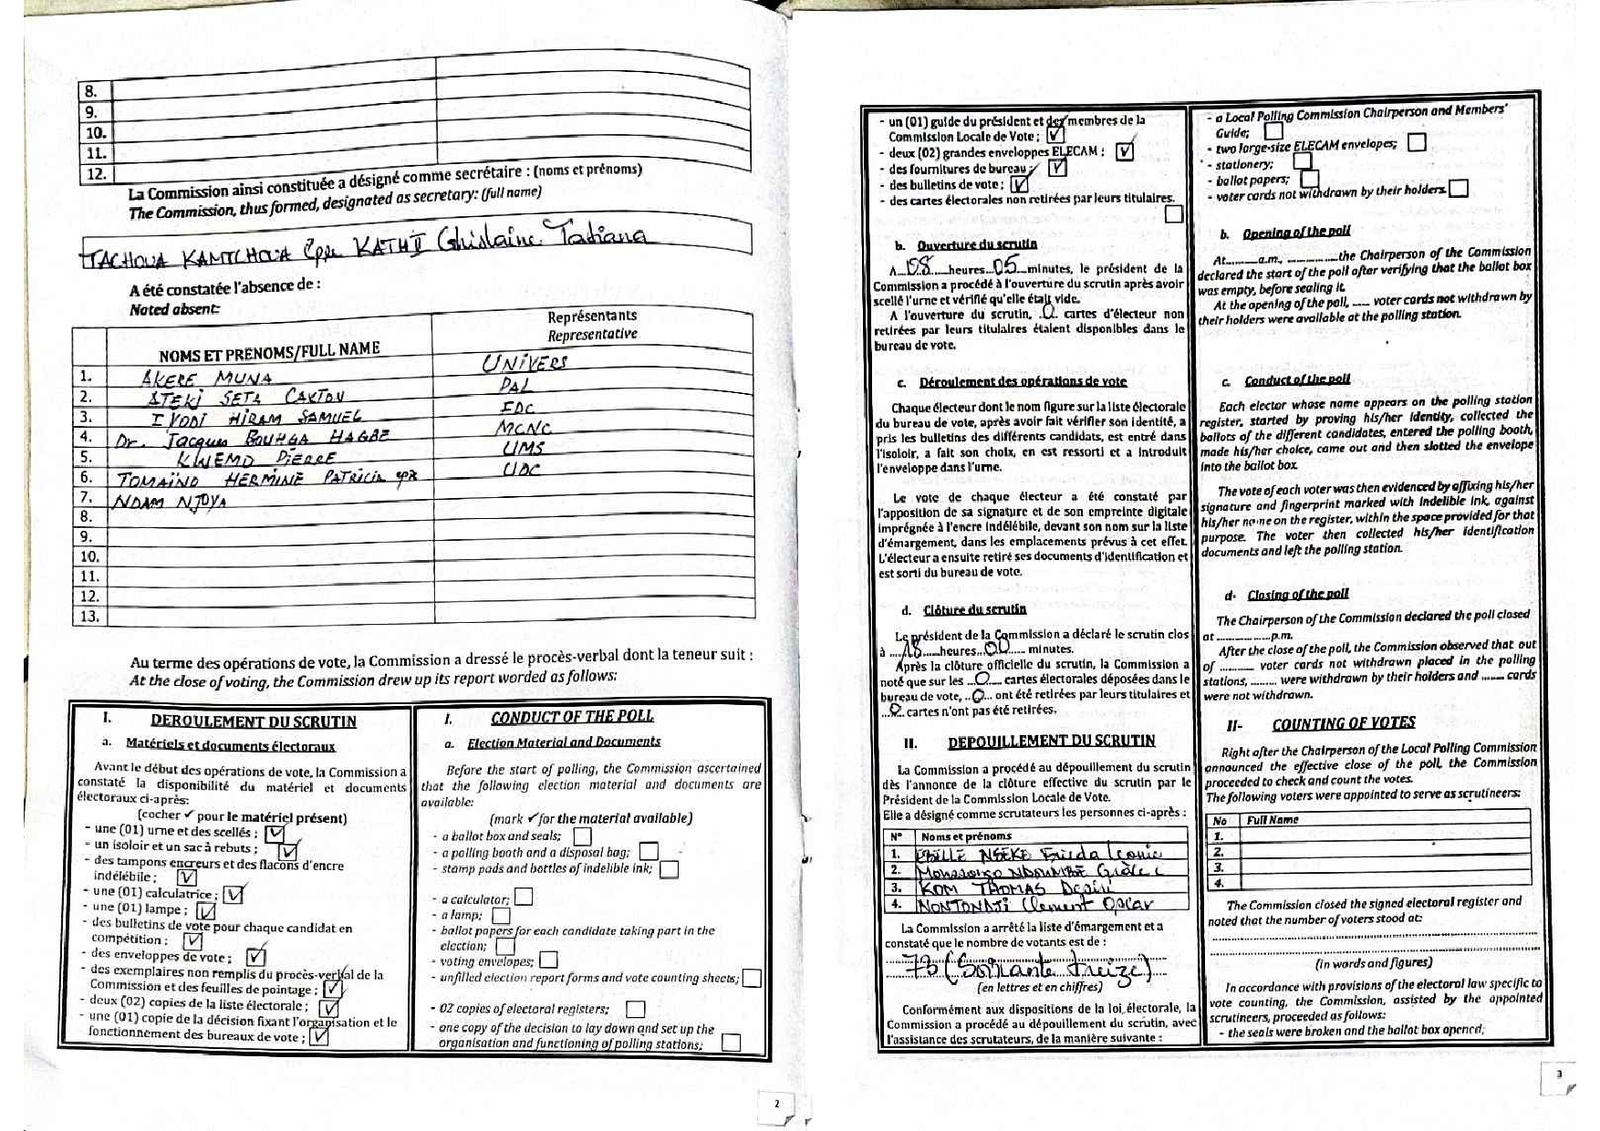 8.
9.
10.
11.
12.
La Commission ainsi constituée a désigné comme secrétaire : (noms et prénoms)
The Commission, thus formed, designated as secretary: (full name)
TACHOUA KAMTCHOUA Epse KATHJI Ghislaine Tatiana
A été constatée l'absence de :
Noted absent:
NOMS ET PRENOMS/FULL NAME
Représentants
Representative
1. AKERE MUNA UNIVERS
2. ATEKI SETA CAXTON PAL
3. IYODI HIRAM SAMUEL FDC
4. Dr. Jacques BOUHGA HAGBE MCNC
5. KWEMO PIERRE UMS
6. TOMAINO HERMINE PATRICIA epse UDC
7. NDAM NJOYA
8.
9.
10.
11.
12.
13.
Au terme des opérations de vote, la Commission a dressé le procès-verbal dont la teneur suit :
At the close of voting, the Commission drew up its report worded as follows:
I. DEROULEMENT DU SCRUTIN
a. Matériels et documents électoraux
Avant le début des opérations de vote, la Commission a
constaté la disponibilité du matériel et documents
électoraux ci-après:
(cocher ✓ pour le matériel présent)
- une (01) urne et des scellés ;
- un isoloir et un sac à rebuts ;
- des tampons encreurs et des flacons d'encre
indélébile ;
- une (01) calculatrice ;
- une (01) lampe ;
- des bulletins de vote pour chaque candidat en
compétition ;
- des enveloppes de vote ;
- des exemplaires non remplis du procès-verbal de la
Commission et des feuilles de pointage ;
- deux (02) copies de la liste électorale ;
- une (01) copie de la décision fixant l'organisation et le
fonctionnement des bureaux de vote ;
I. CONDUCT OF THE POLL
a. Election Material and Documents
Before the start of polling, the Commission ascertained
that the following election material and documents are
available:
(mark ✓ for the material available)
- a ballot box and seals;
- a polling booth and a disposal bag;
- stamp pads and bottles of indelible ink;
- a calculator;
- a lamp;
- ballot papers for each candidate taking part in the
election;
- voting envelopes;
- unfilled election report forms and vote counting sheets;
- 02 copies of electoral registers;
- one copy of the decision to lay down and set up the
organisation and functioning of polling stations;
2
- un (01) guide du président et des membres de la
Commission Locale de Vote ;
- deux (02) grandes enveloppes ELECAM ;
- des fournitures de bureau ;
- des bulletins de vote ;
- des cartes électorales non retirées par leurs titulaires.
b. Ouverture du scrutin
A 08 heures 05 minutes, le président de la
Commission a procédé à l'ouverture du scrutin après avoir
scellé l'urne et vérifié qu'elle était vide.
A l'ouverture du scrutin, 0 cartes d'électeur non
retirées par leurs titulaires étaient disponibles dans le
bureau de vote.
c. Déroulement des opérations de vote
Chaque électeur dont le nom figure sur la liste électorale
du bureau de vote, après avoir fait vérifier son identité, a
pris les bulletins des différents candidats, est entré dans
l'isoloir, a fait son choix, en est ressorti et a introduit
l'enveloppe dans l'urne.
Le vote de chaque électeur a été constaté par
l'apposition de sa signature et de son empreinte digitale
imprégnée à l'encre indélébile, devant son nom sur la liste
d'émargement, dans les emplacements prévus à cet effet.
L'électeur a ensuite retiré ses documents d'identification et
est sorti du bureau de vote.
d. Clôture du scrutin
Le président de la Commission a déclaré le scrutin clos
à 18 heures 00 minutes.
Après la clôture officielle du scrutin, la Commission a
noté que sur les 0 cartes électorales déposées dans le
bureau de vote, 0 ont été retirées par leurs titulaires et
0 cartes n'ont pas été retirées.
II. DEPOUILLEMENT DU SCRUTIN
La Commission a procédé au dépouillement du scrutin
dès l'annonce de la clôture effective du scrutin par le
Président de la Commission Locale de Vote.
Elle a désigné comme scrutateurs les personnes ci-après :
N° Noms et prénoms
1. EBELLE NSEKE Frieda Leonie
2. Moussongo NDOUMBE
3. KOM THOMAS Desiré
4. NONTONATI Clement Oscar
La Commission a arrêté la liste d'émargement et a
constaté que le nombre de votants est de :
73 (Soixante treize)
(en lettres et en chiffres)
Conformément aux dispositions de la loi électorale, la
Commission a procédé au dépouillement du scrutin, avec
l'assistance des scrutateurs, de la manière suivante :
- a Local Polling Commission Chairperson and Members'
Guide;
- two large-size ELECAM envelopes;
- stationery;
- ballot papers;
- voter cards not withdrawn by their holders.
b. Opening of the poll
At........a.m., ............the Chairperson of the Commission
declared the start of the poll after verifying that the ballot box
was empty, before sealing it.
At the opening of the poll, ...... voter cards not withdrawn by
their holders were available at the polling station.
c. Conduct of the poll
Each elector whose name appears on the polling station
register, started by proving his/her identity, collected the
ballots of the different candidates, entered the polling booth,
made his/her choice, came out and then slotted the envelope
into the ballot box.
The vote of each voter was then evidenced by affixing his/her
signature and fingerprint marked with indelible ink, against
his/her name on the register, within the space provided for that
purpose. The voter then collected his/her identification
documents and left the polling station.
d- Closing of the poll
The Chairperson of the Commission declared the poll closed
at ...............p.m.
After the close of the poll, the Commission observed that out
of .......... voter cards not withdrawn placed in the polling
stations, ........ were withdrawn by their holders and ....... cards
were not withdrawn.
II- COUNTING OF VOTES
Right after the Chairperson of the Local Polling Commission
announced the effective close of the poll, the Commission
proceeded to check and count the votes.
The following voters were appointed to serve as scrutineers:
No Full Name
1.
2.
3.
4.
The Commission closed the signed electoral register and
noted that the number of voters stood at:
(in words and figures)
In accordance with provisions of the electoral law specific to
vote counting, the Commission, assisted by the appointed
scrutineers, proceeded as follows:
- the seals were broken and the ballot box opened;
3